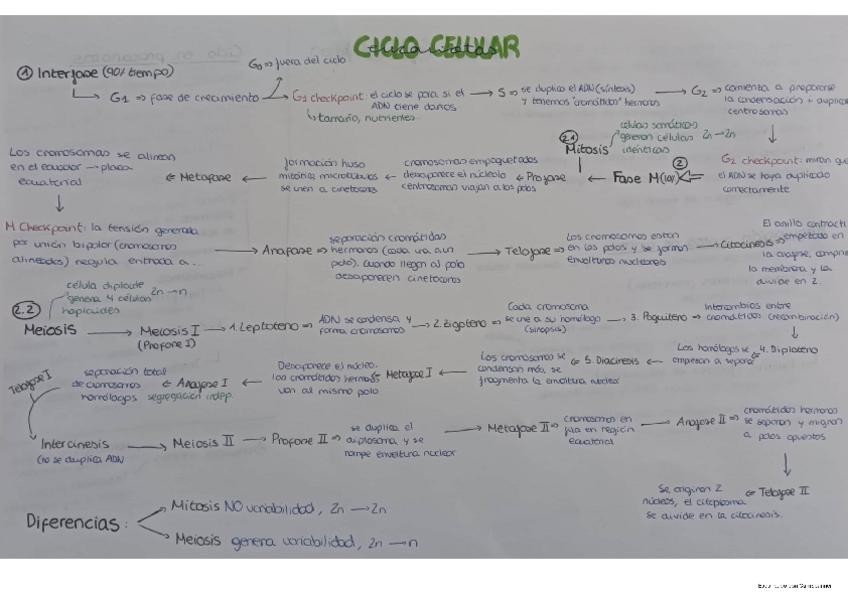 CICLO CELULAR
eucariotas
G0 ⇒ fuera del ciclo
① Interfase (90% tiempo)
G1 ⇒ fase de crecimiento → G1 checkpoint: el ciclo se para si el
ADN tiene daños
tamaño, nutrientes
→ S ⇒ se duplica el ADN (síntesis)
y tenemos "cromátidas" hermanas
→ G2 ⇒ comienza a prepararse
la condensación + duplica
centrosomas
G2 checkpoint: miran que
el ADN se haya duplicado
correctamente
② Fase M (10%)
2.1 Mitosis
células somáticas
generan células 2n → 2n
idénticas
Profase ⇒ cromosomas empaquetados
desaparece el nucleolo
centrosomas viajan a los polos
formación huso
mitótico, microtúbulos
se unen a cinetocoros
Metafase
Los cromosomas se alinean
en el ecuador → placa
ecuatorial
M Checkpoint: la tensión generada
por unión bipolar (cromosomas
alineados) regula entrada a...
→ Anafase ⇒ separación cromátidas
hermanas (cada una a un
polo). Cuando llegan al polo
desaparecen cinetocoros
→ Telofase ⇒ Los cromosomas están
en los polos y se forman
envolturas nucleares
→ Citocinesis ⇒
El anillo contráctil
empezado en
la anafase, comprime
la membrana y la
divide en 2.
2.2 Meiosis
célula diploide
genera 4 células 2n → n
haploides
→ Meiosis I
(Profase I)
→ 1. Leptoteno ⇒ ADN se condensa y
forma cromosomas
→ 2. Zigoteno ⇒ Cada cromosoma
se une a su homólogo
(sinapsis)
→ 3. Paquiteno ⇒ Intercambios entre
cromátidas (recombinación)
4. Diploteno
Los homólogos se
empiezan a separar
← 5. Diacinesis
Los cromosomas se
condensan más, se
fragmenta la envoltura nuclear
← Metafase I
Desaparece el núcleo.
las cromátidas hermanas
van al mismo polo
← Anafase I
separación total
de cromosomas
homólogos segregación indep.
Telofase I
Intercinesis
(no se duplica ADN
→ Meiosis II → Profase II ⇒ se duplica el
diplosoma y se
rompe envoltura nuclear
→ Metafase II ⇒ cromosomas en
fila en región
ecuatorial
→ Anafase II ⇒ cromátidas hermanas
se separan y migran
a polos opuestos
Telofase II
Se originan 2
núcleos, el citoplasma
se divide en la citocinesis.
Diferencias:
Mitosis NO variabilidad, 2n → 2n
Meiosis genera variabilidad, 2n → n